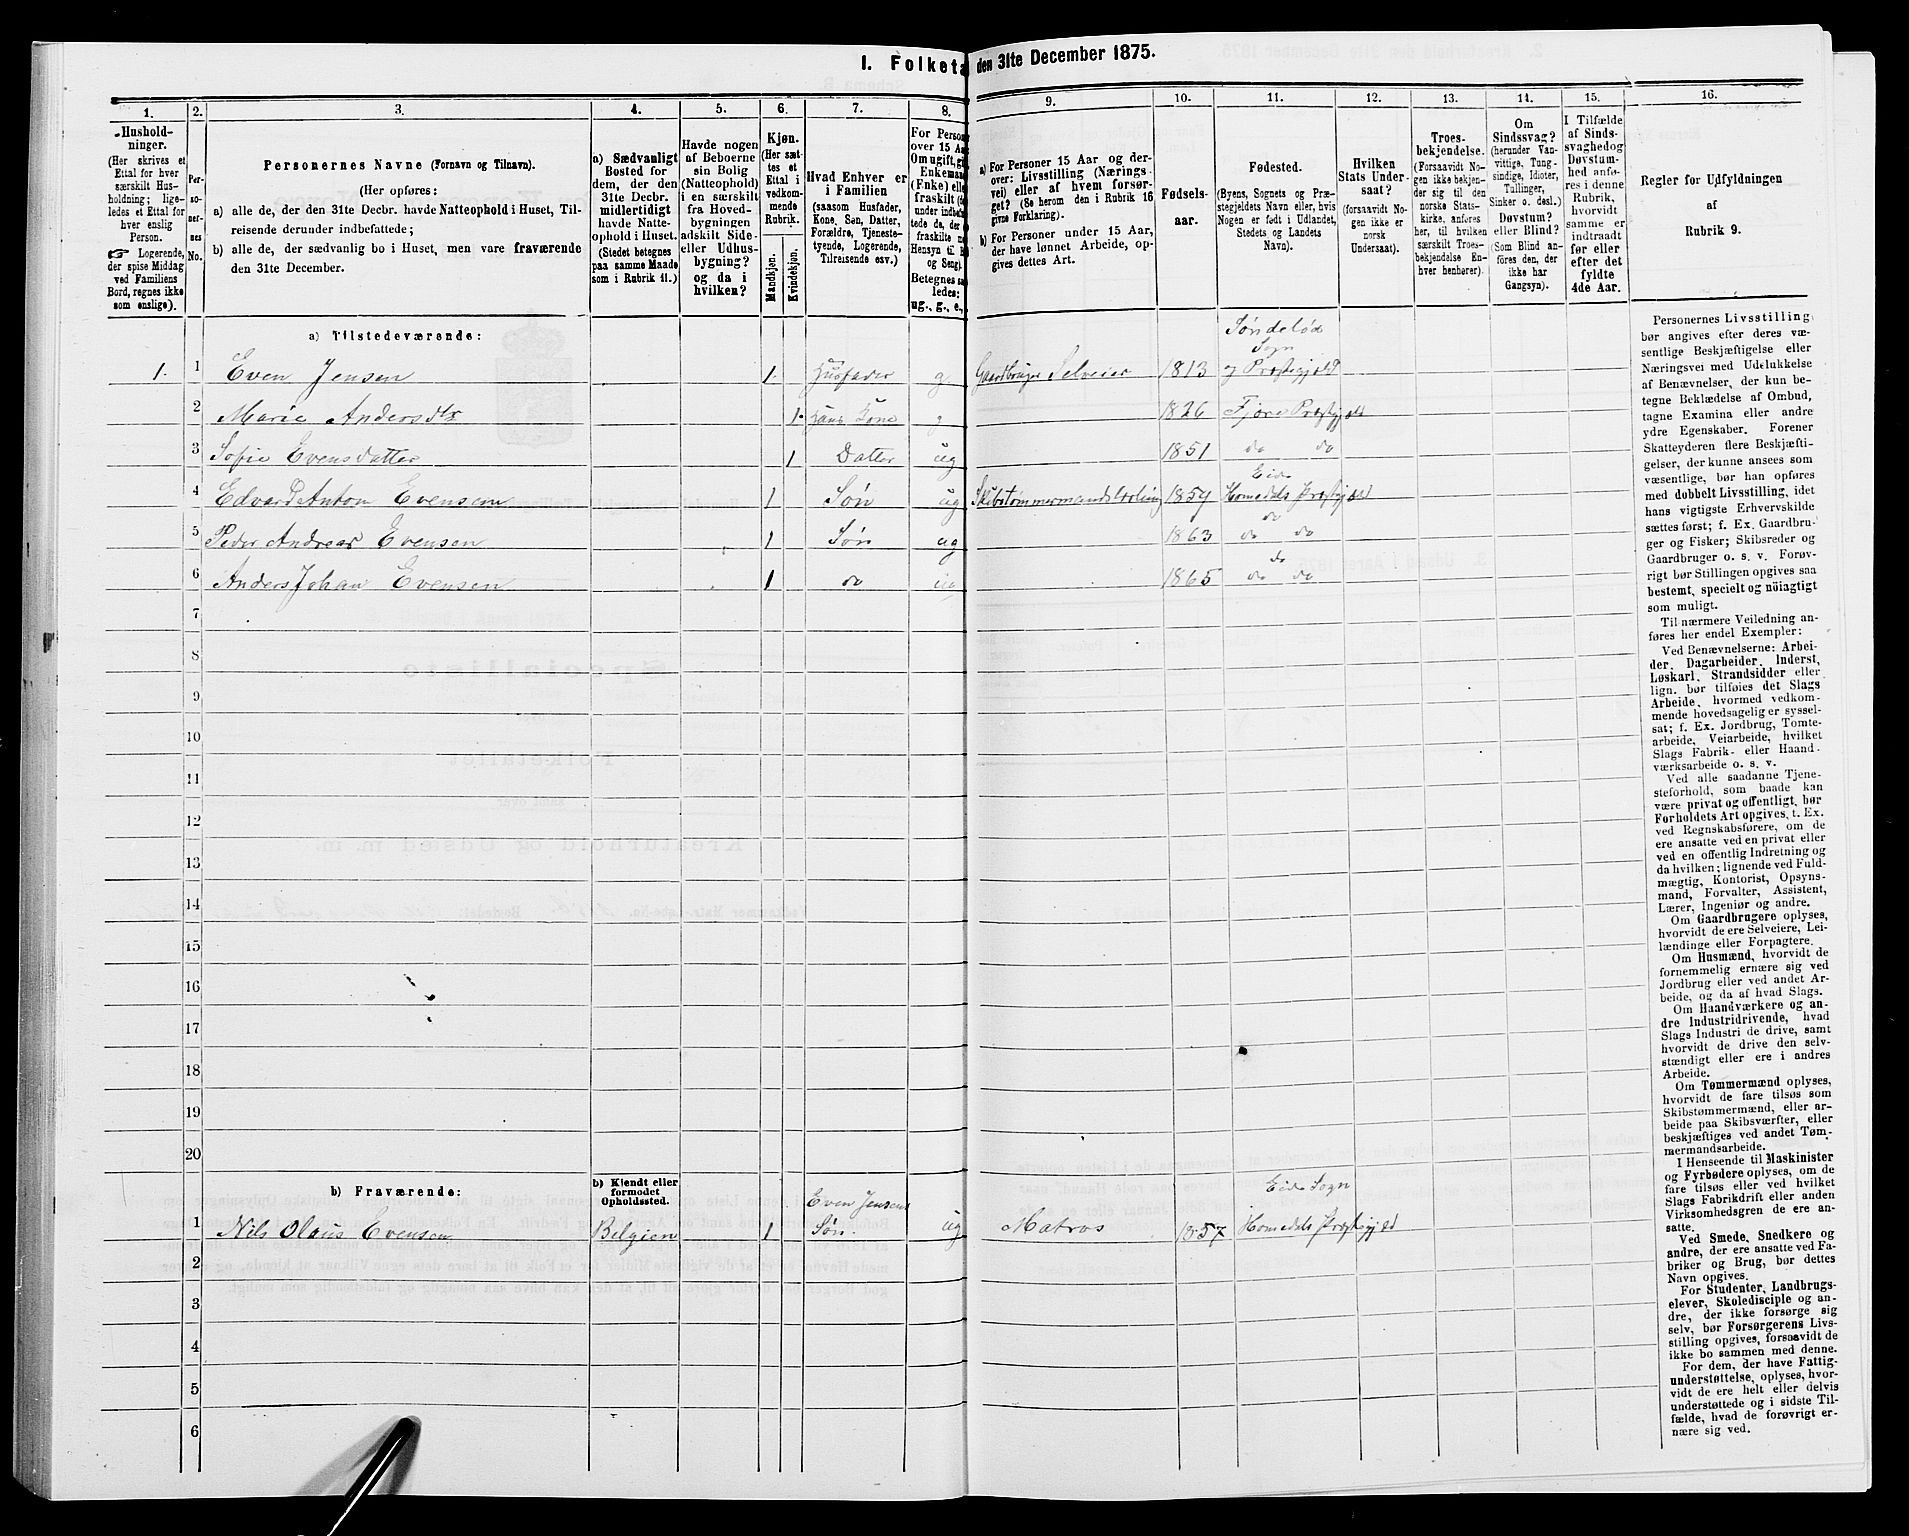 I. Folketa den 31te December 1875.
1.
2.
3.
4.
5.
6.
7.
8.
9.
10.
11.
12.
13.
14.
15.
16.
Hushold-
ninger.
(Her skrives et
Ettal for hver
særskilt Hus-
holdning; lige-
ledes et Ettal for
hver enslig
Person.
☞ Logerende,
der spise Middag
ved Familiens
Bord, regnes ikke
som enslige).
Per-
so-
ner-
nes
No.
Personernes Navne (Fornavn og Tilnavn).
(Her opføres:
a) alle de, der den 31te Decbr. havde Natteophold i Huset, Til-
reisende derunder indbefattede;
b) alle de, der sædvanlig bo i Huset, men vare fraværende
den 31te December.
a) Sædvanligt
Bosted for
dem, der den
31te Decbr.
midlertidigt
havde Natte-
ophold i Huset.
(Stedet betegnes
paa samme Maade
som i Rubrik 11.)
Havde nogen
af Beboerne
sin Bolig
(Natteophold)
i en særskilt
fra Hoved-
bygningen
adskilt Side-
eller Udhus-
bygning?
og da i
hvilken?
Kjøn.
(Her sæt-
tes et
Ettal i
vedkom-
mende
Rubrik.
Mandkjøn.
Kvindekjøn.
Hvad Enhver er
i Familien
(saasom Husfader,
Kone, Søn, Datter,
Forældre, Tjeneste-
tyende, Logerende,
Tilreisende osv.)
For Person
over 15 Aa
Om ugift, gi
Enkemand
(Enke) elle
fraskilt
under indbefa
tede de, der
fraskilte m
Hensyn til B
og Seng).
Betegnes saa
ledes:
ug., g., e.,
a) For Personer 15 Aar og der-
over: Livsstilling (Nærings-
vei) eller af hvem forsør-
get? (Se herom den i Rubrik 16
givne Forklaring).
b) For Personer under 15 Aar,
der have lønnet Arbeide, op-
gives dettes Art.
Fødsels-
aar.
Fødested.
(Byens, Sognets og Præ-
stegjeldets Navn eller, hvis
Nogen er født i Udlandet,
Stedets og Landets
Navn).
Hvilken
Stats Under-
saat?
(forsaavidt No-
gen ikke er
norsk
Undersaat).
Troes-
bekjendelse.
(Forsaavidt No-
gen ikke bekjen-
der sig til den
norske Stats-
kirke, anføres
her, til hvilken
særskilt Troes-
bekjendelse En-
hver henhører).
Om
Sindssvag?
(herunder Van-
vittige, Tung-
sindige, Idioter,
Tullinger,
Sinker o. desl.)
Døvstum?
eller Blind?
(Som Blind an-
føres den, der
ikke har
Gangsyn).
I Tilfælde
af Sinds-
svaghed og
Døvstum-
hed anfø-
res i denne
Rubrik,
hvorvidt
samme er
indtraadt
før eller
efter det
fyldte
4de Aar.
Regler for Udfyldningen
af
Rubrik 9.
a) Tilstedeværende:
Søndeløds
Sogn
1. 1 Even Jensen 1. Husfader g. Gaardbruger Selveier 1813 og Præstegjeld
2 Marie Andersdtr 1. Hans Kone g 1826 Fjære Præstegjeld
3 Sofie Evensdatter 1 Datter ug 1851 do do
Eide
4 Edvard Anton Evensen 1 Søn ug Skibstømmermandslærling 1859 Homedals Præstegjeld
do
5 Peder Andreas Evensen 1 Søn ug 1863 do do
do
6 Anders Johan Evensen 1 do ug 1865 do do
7
8
9
10
11
12
13
14
15
16
17
18
19
20
b) Fraværende:
b) Kjendt eller
formodet
Opholdssted.
Even Jensens Eide Sogn
1 Nils Olaus Evensen Belgien 1 Søn. ug Matros 1857 Homedals Præstegjeld
2
3
4
5
6
Personernes Livsstilling
bør angives efter deres væ-
sentlige Beskjæftigelse eller
Næringsvei med Udelukkelse
af Benævnelser, der kun be-
tegne Beklædelse af Ombud,
tagne Examina eller andre
ydre Egenskaber. Forener
Skatteyderen flere Beskjæfti-
gelser, der kunne ansees som
væsentlige, bør han opføres
med dobbelt Livsstilling, idet
hans vigtigste Erhvervskilde
sættes først; f. Ex. Gaardbru-
ger og Fisker; Skibsreder og
Gaardbruger o. s. v. Forøv-
rigt bør Stillingen opgives saa
bestemt, specielt og nöiagtigt
som muligt.
Til nærmere Veiledning an-
føres her endel Exempler:
Ved Benævnelserne: Arbei-
der, Dagarbeider, Inderst,
Løskarl, Strandsidder eller
lign. bør tilføies det Slags
Arbeide, hvormed vedkom-
mende hovedsagelig er syssel-
sat; f. Ex. Jordbrug, Tomte-
arbeide, Veiarbeide, hvilket
Slags Fabrik- eller Haand-
værksarbeide o. s. v.
Ved alle saadanne Tjene-
steforhold, som baade kan
være privat og offentligt, bør
Forholdets Art opgives, t. Ex.
ved Regnskabsførere, om de
ere ansatte ved en privat eller
ved en offentlig Indretning og
da hvilken; lignende ved Fuld-
mægtig, Kontorist, Opsyns-
mand, Forvalter, Assistent,
Lærer, Ingeniør og andre.
Om Gaardbrugere oplyses,
hvorvidt de ere Selveiere, Lei-
lændinge eller Forpagtere.
Om Husmænd, hvorvidt de
fornemmelig ernære sig ved
Jordbrug eller ved andet Ar-
beide, og da af hvad Slags.
Om Haandværkere og an-
dre Industridrivende, hvad
Slags Industri de drive, samt
hvorvidt de drive den selv-
stændigt eller ere i andres
Arbeide.
Om Tømmermænd oplyses,
hvorvidt de fare tilsøs som
Skibstømmermænd, eller ar-
beide paa Skibsværfter, eller
beskjæftiges ved andet Tøm-
mermandsarbeide.
I Henseende til Maskinister
og Fyrbødere oplyses, om de
fare tilsøs eller ved hvilket
Slags Fabrikdrift eller anden
Virksomhedsgren de ere an-
satte.
Ved Smede, Snedkere og
andre, der ere ansatte ved Fa-
briker og Brug, bør dettes
Navn opgives.
For Studenter, Landbrugs-
elever, Skoledisciple og an-
dre, der ikke forsørge sig
selv, bør Forsørgerens Livs-
stilling opgives, forsaavidt de
ikke bo sammen med denne.
For dem, der have Fattig-
understøttelse, oplyses, hvor-
vidt de ere helt eller delvis
understøttede og i sidste Til-
fælde, hvad de forøvrigt er-
nære sig ved.